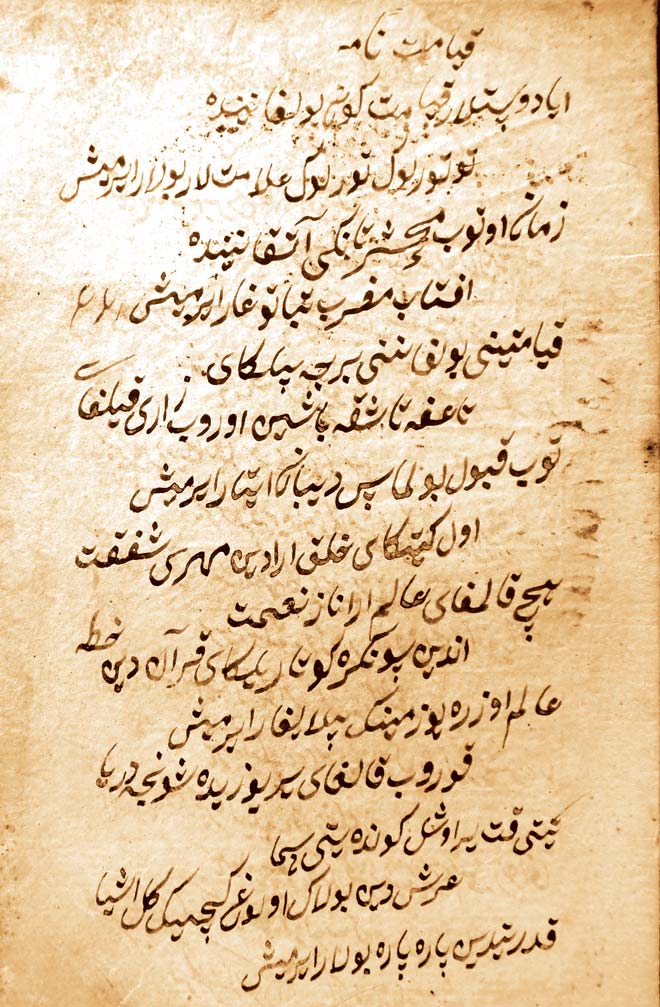 قیامت نامه
ایا دوستلار قیامت کونی بولغانیده
تورتور بول تورلوک علامت لار بولار ایرمیش
زمان اوتوب محشر تانکی آتقانیده
افتاب مغرب تبا توغار ایرمیش
قیامتینی بولغاننی برچه بیلکای
تاعفه تاشقه باشین اوروب زاری قیلغای
توب قبول بولماس دیبان ایتار ایرمیش
اول کیتکای خلق ارادین مهری شفقت
هیچ قالمغای عالم ارا ناز نعمت
اندین سونکره کوتاریلکای قرآن دین خطه
عالم اوزره یوز مینک بلا یغار ایرمیش
قوروب قالغای یر یوزیده شونجه دریا
یتی قت یر اوشل کونده یتی سما
عرش دین بولاک اولوغ کیچیک کل اشیا
قدرتیدین پاره پاره بولار ایرمیش